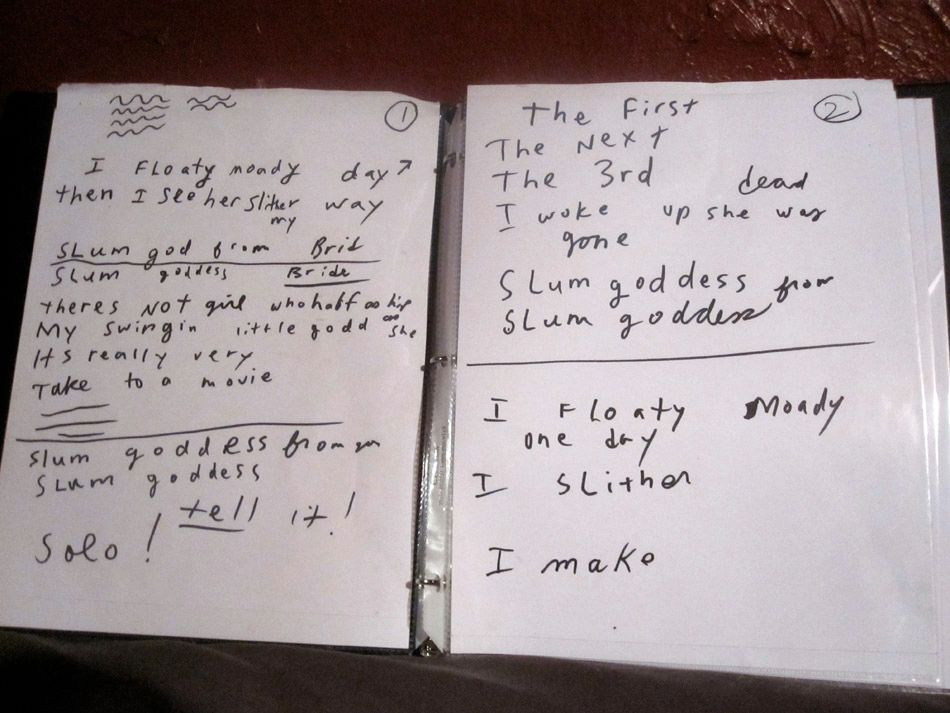 1
I Floaty moody day
then I see her slither my way
SLum god from Brid
SLum goddess Bride
theres Not girl who half as hip
My swingin little godd as she
Its really very
Take to a movie
Slum goddess from
SLum goddess
Solo! tell it!
2
The First
The Next
The 3rd dead
I woke up she was
gone
SLum goddess from
SLum goddess
I Floaty Moody
one day
I SLither
I make